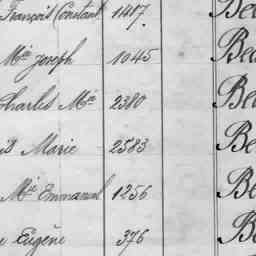 François Constant 1417. Be
Mie Joseph 1045 Be
Charles Mie 2380 Be
Marie 2583 Be
Mie Emmanuel 1256 Be
Eugène 376 Be